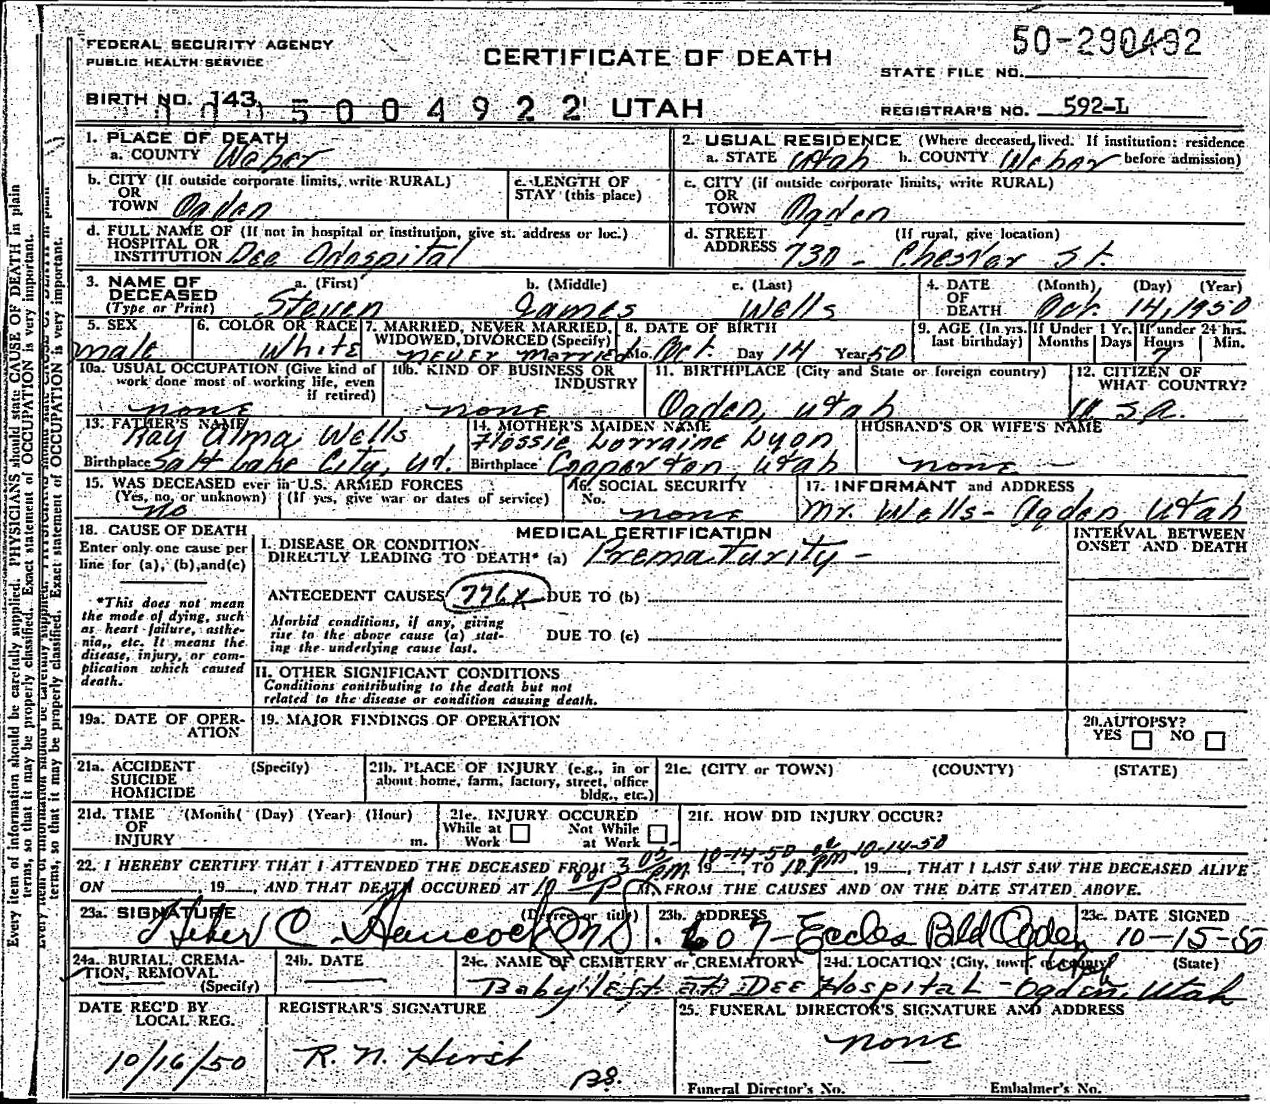 50-290492
FEDERAL SECURITY AGENCY
PUBLIC HEALTH SERVICE
CERTIFICATE OF DEATH
STATE FILE NO.
BIRTH NO. 143
5004922 UTAH
REGISTRAR'S NO. 592-L
1. PLACE OF DEATH
a. COUNTY Weber
2. USUAL RESIDENCE (Where deceased lived. If institution: residence before admission)
a. STATE Utah b. COUNTY Weber
b. CITY (If outside corporate limits, write RURAL)
OR
TOWN Ogden
c. LENGTH OF
STAY (this place)
c. CITY (if outside corporate limits, write RURAL)
OR
TOWN Ogden
d. FULL NAME OF (If not in hospital or institution, give st. address or loc.)
HOSPITAL OR
INSTITUTION Dee Hospital
d. STREET (If rural, give location)
ADDRESS 730 - Chester St.
3. NAME OF DECEASED
(Type or Print)
a. (First) b. (Middle) c. (Last)
Steven James Wells
4. DATE OF DEATH (Month) (Day) (Year)
Oct. 14, 1950
5. SEX
male
6. COLOR OR RACE
White
7. MARRIED, NEVER MARRIED,
WIDOWED, DIVORCED (Specify)
never married
8. DATE OF BIRTH
Mo. Oct. Day 14 Year 50
9. AGE (In yrs. last birthday)
If Under 1 Yr. Months Days
If under 24 hrs. Hours Min.
7
10a. USUAL OCCUPATION (Give kind of
work done most of working life, even
if retired)
none
10b. KIND OF BUSINESS OR
INDUSTRY
none
11. BIRTHPLACE (City and State or foreign country)
Ogden, Utah
12. CITIZEN OF
WHAT COUNTRY?
U.S.A.
13. FATHER'S NAME
Ray Alma Wells
Birthplace Salt Lake City, Ut.
14. MOTHER'S MAIDEN NAME
Flossie Lorraine Lyon
Birthplace Copperton, Utah
HUSBAND'S OR WIFE'S NAME
none
15. WAS DECEASED ever in U.S. ARMED FORCES
(Yes, no, or unknown) (If yes, give war or dates of service)
no
16. SOCIAL SECURITY
No. none
17. INFORMANT and ADDRESS
Mr. Wells - Ogden Utah
18. CAUSE OF DEATH
Enter only one cause per
line for (a), (b), and (c)
*This does not mean
the mode of dying, such
as heart failure, asthe-
nia,, etc. It means the
disease, injury, or com-
plication which caused
death.
MEDICAL CERTIFICATION
INTERVAL BETWEEN
ONSET AND DEATH
I. DISEASE OR CONDITION
DIRECTLY LEADING TO DEATH* (a) Prematurity -
ANTECEDENT CAUSES 776X DUE TO (b)
Morbid conditions, if any, giving
rise to the above cause (a) stat-
ing the underlying cause last.
DUE TO (c)
II. OTHER SIGNIFICANT CONDITIONS
Conditions contributing to the death but not
related to the disease or condition causing death.
19a. DATE OF OPER-
ATION
19. MAJOR FINDINGS OF OPERATION
20. AUTOPSY?
YES NO
21a. ACCIDENT (Specify)
SUICIDE
HOMICIDE
21b. PLACE OF INJURY (e.g., in or
about home, farm, factory, street, office
bldg., etc.)
21c. (CITY or TOWN) (COUNTY) (STATE)
21d. TIME (Month( (Day) (Year) (Hour)
OF
INJURY m.
21e. INJURY OCCURED
While at Work
Not While at Work
21f. HOW DID INJURY OCCUR?
10-14-50 10-14-50
22. I HEREBY CERTIFY THAT I ATTENDED THE DECEASED FROM 3 05 PM, 19__, TO 10 PM, 19__, THAT I LAST SAW THE DECEASED ALIVE
ON ____, 19__, AND THAT DEATH OCCURED AT 10 P M. FROM THE CAUSES AND ON THE DATE STATED ABOVE.
23a. SIGNATURE (Degree or title)
Heber C. Hancock MD.
23b. ADDRESS
607 - Eccles Bld Ogden
23c. DATE SIGNED
10-15-50
24a. BURIAL, CREMA-
TION, REMOVAL
(Specify)
24b. DATE
24c. NAME OF CEMETERY or CREMATORY
24d. LOCATION (City, town, or county) (State)
Baby left at Dee Hospital - Ogden, Utah
DATE REC'D BY
LOCAL REG.
10/16/50
REGISTRAR'S SIGNATURE
R. N. Hirst
25. FUNERAL DIRECTOR'S SIGNATURE AND ADDRESS
none
Funeral Director's No. Embalmer's No.
Every item of information should be carefully supplied. PHYSICIANS should state CAUSE OF DEATH in plain
terms, so that it may be properly classified. Exact statement of OCCUPATION is very important.
terms, so that it may be properly classified. Exact statement of OCCUPATION is very important.